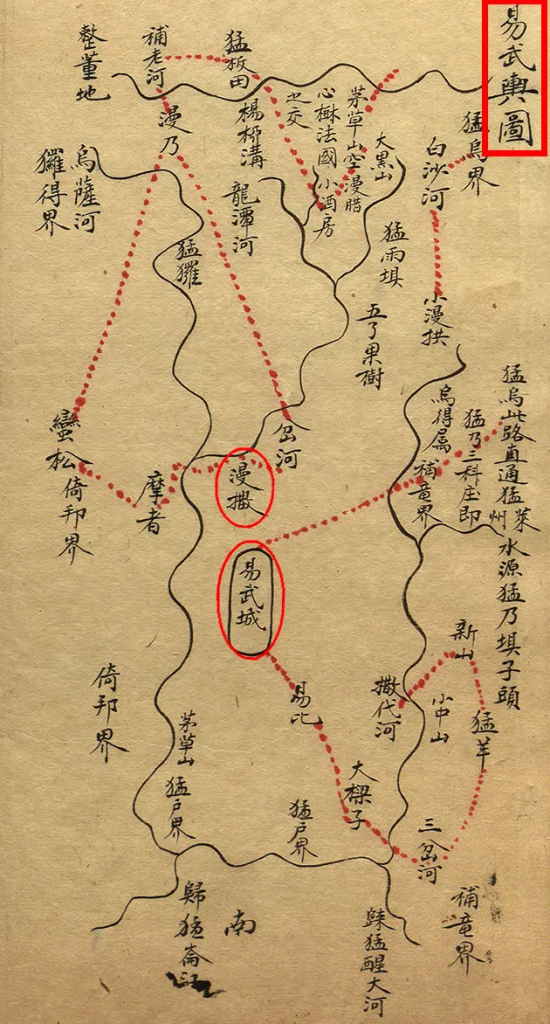 易武輿圖
猛烏界
白沙河
小漫拱
大黑山
猛雨垻
五了果樹
茅草山空漫腊
心樹法國小酒房
之交
猛板田
楊柳溝
龍潭河
補老河
漫乃
猛玀
整董地
烏薩河
玀得界
蠻松
倚邦界
摩者
岔河
漫撒
易武城
猛烏此路直通猛萊
州
猛乃三科庄即
烏得属
補竜界
水源猛乃垻子頭
新山
小中山
猛羊
撒代河
易比
大樑子
三岔河
倚邦界
茅草山
猛户界
猛户界
補竜界
歸猛醒大河
南
歸猛崙江